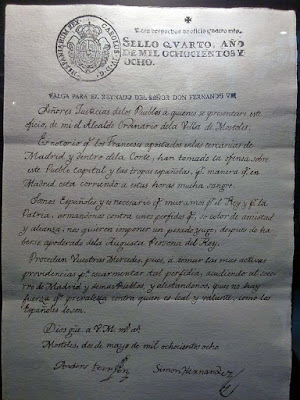 Para despachos de oficio quatro mrs.
SELLO QVARTO, AÑO
DE MIL OCHOCIENTOS Y
OCHO.
VALGA PARA EL REYNADO DEL SEÑOR DON FERNANDO VII
Señores Justicias delos Pueblos a quienes se presentare este
oficio, de mi el Alcalde Ordinario dela Villa de Mostoles.
Es notorio qe. los Franceses apostados enlas cercanias de
Madrid y dentro dela Corte, han tomado la ofensa sobre
este Pueblo Capital y las tropas españolas, pr. manera qe. en
Madrid esta corriendo a estas horas mucha sangre.
Somos Españoles y es necesario qe. muramos pr. el Rey y pr. la
Patria, armandonos contra unos perfidos qe. so color de amistad
y alianza, nos quieren imponer un pesado yugo, despues de ha-
berse apoderado dela Augusta Persona del Rey.
Procedan Vuestras Mercedes, pues, a tomar las mas activas
providencias pa. escarmentar tal perfidia, acudiendo al socor-
ro de Madrid y demas Pueblos, y alistandonos, pues no hay
fuerza qe. prevalezca contra quien es leal y valiente, como los
Españoles lo son.
Dios gue. a V.M. ms. as.
Mostoles, dos de mayo de mil ochocientos ocho.
Andres Torrejon
Simon Hernandez